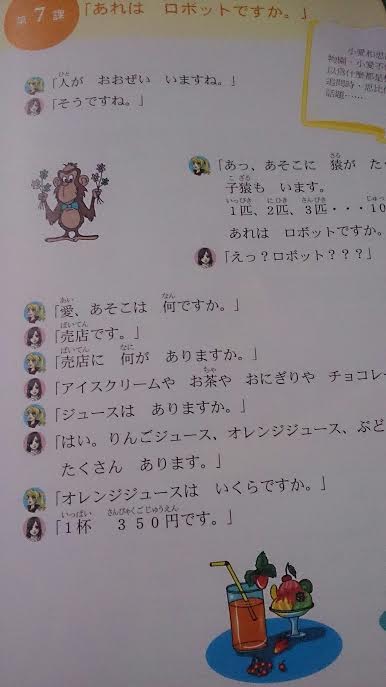 第7課
「あれは ロボットですか。」
小愛和恵
物園，小愛不
以為什麼都是
話題……
「人が おおぜい いますね。」
「そうですね。」
「あっ、あそこに 猿が た
子猿も います。
1匹、2匹、3匹・・・10
あれは ロボットですか。
「えっ？ロボット？？？」
「愛、あそこは 何ですか。」
「売店です。」
「売店に 何が ありますか。」
「アイスクリームや お茶や おにぎりや チョコレー
「ジュースは ありますか。」
「はい。りんごジュース、オレンジジュース、ぶど
たくさん あります。」
「オレンジジュースは いくらですか。」
「1杯 350円です。」